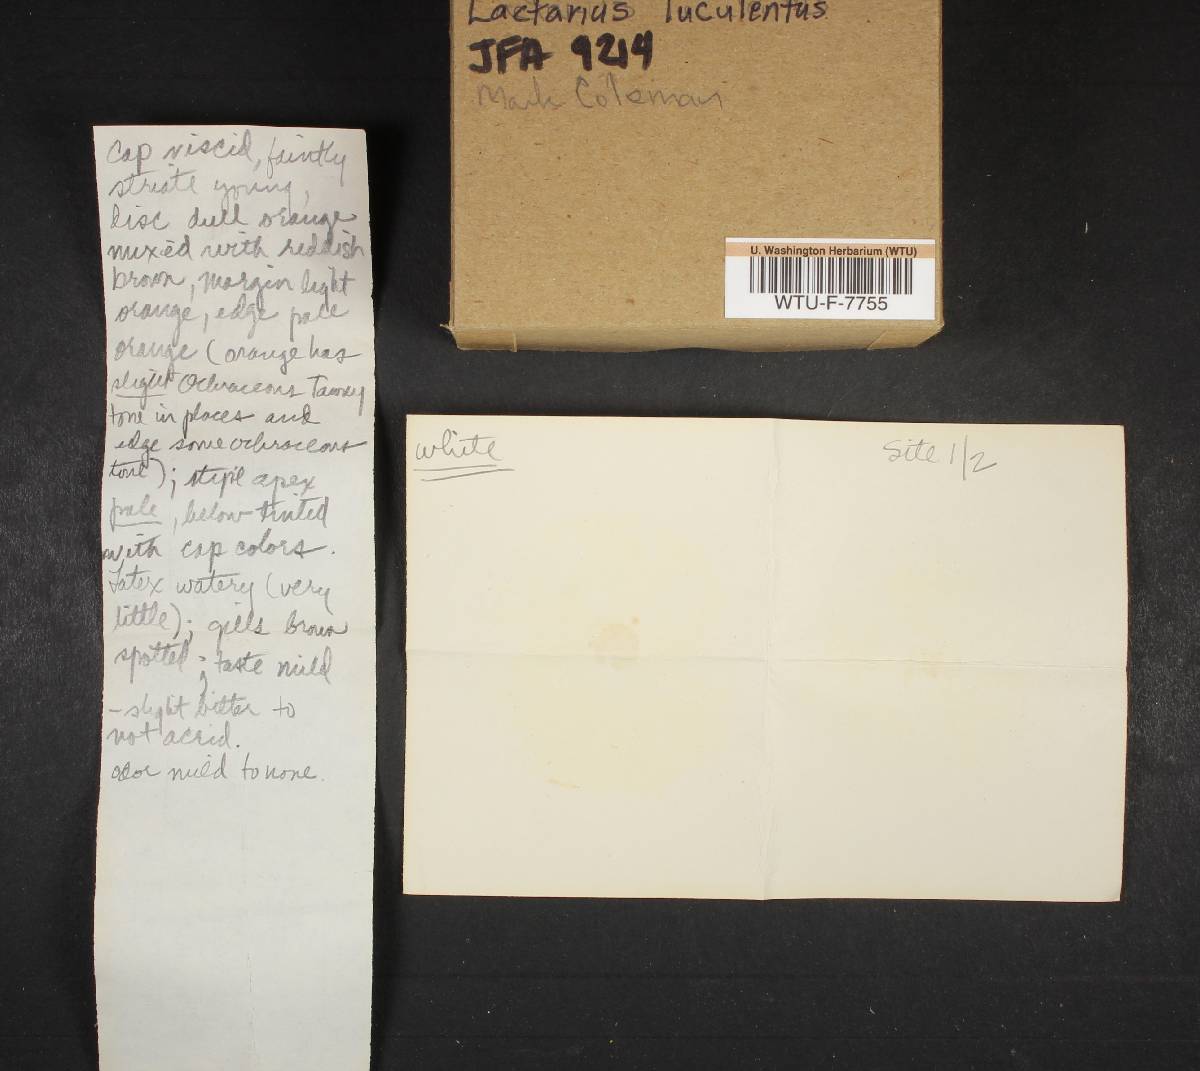 Lactarius luculentus
JFA 9214
Mark Coleman
U. Washington Herbarium (WTU)
WTU-F-7755
Cap viscid, faintly
striate young,
disc dull orange
mixed with reddish
brown, margin light
orange, edge pale
orange (orange has
slight Ochraceous Tawny
tone in places and
edge some ochraceous
tone); stipe apex
pale, below tinted
with cap colors.
Latex watery (very
little); gills brown
spotted; taste mild
- slight bitter to
not acrid.
odor mild to none.
white
Site 1/2